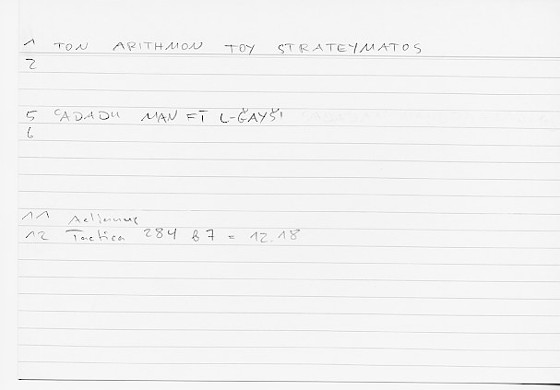 1 TON ARITHMON TOY STRATEYMATOS
2
5 ʿADADU MAN FĪ L-ǦAYŠI
6
11 Aelianus
12 Tactica 284 B7 = 12.18